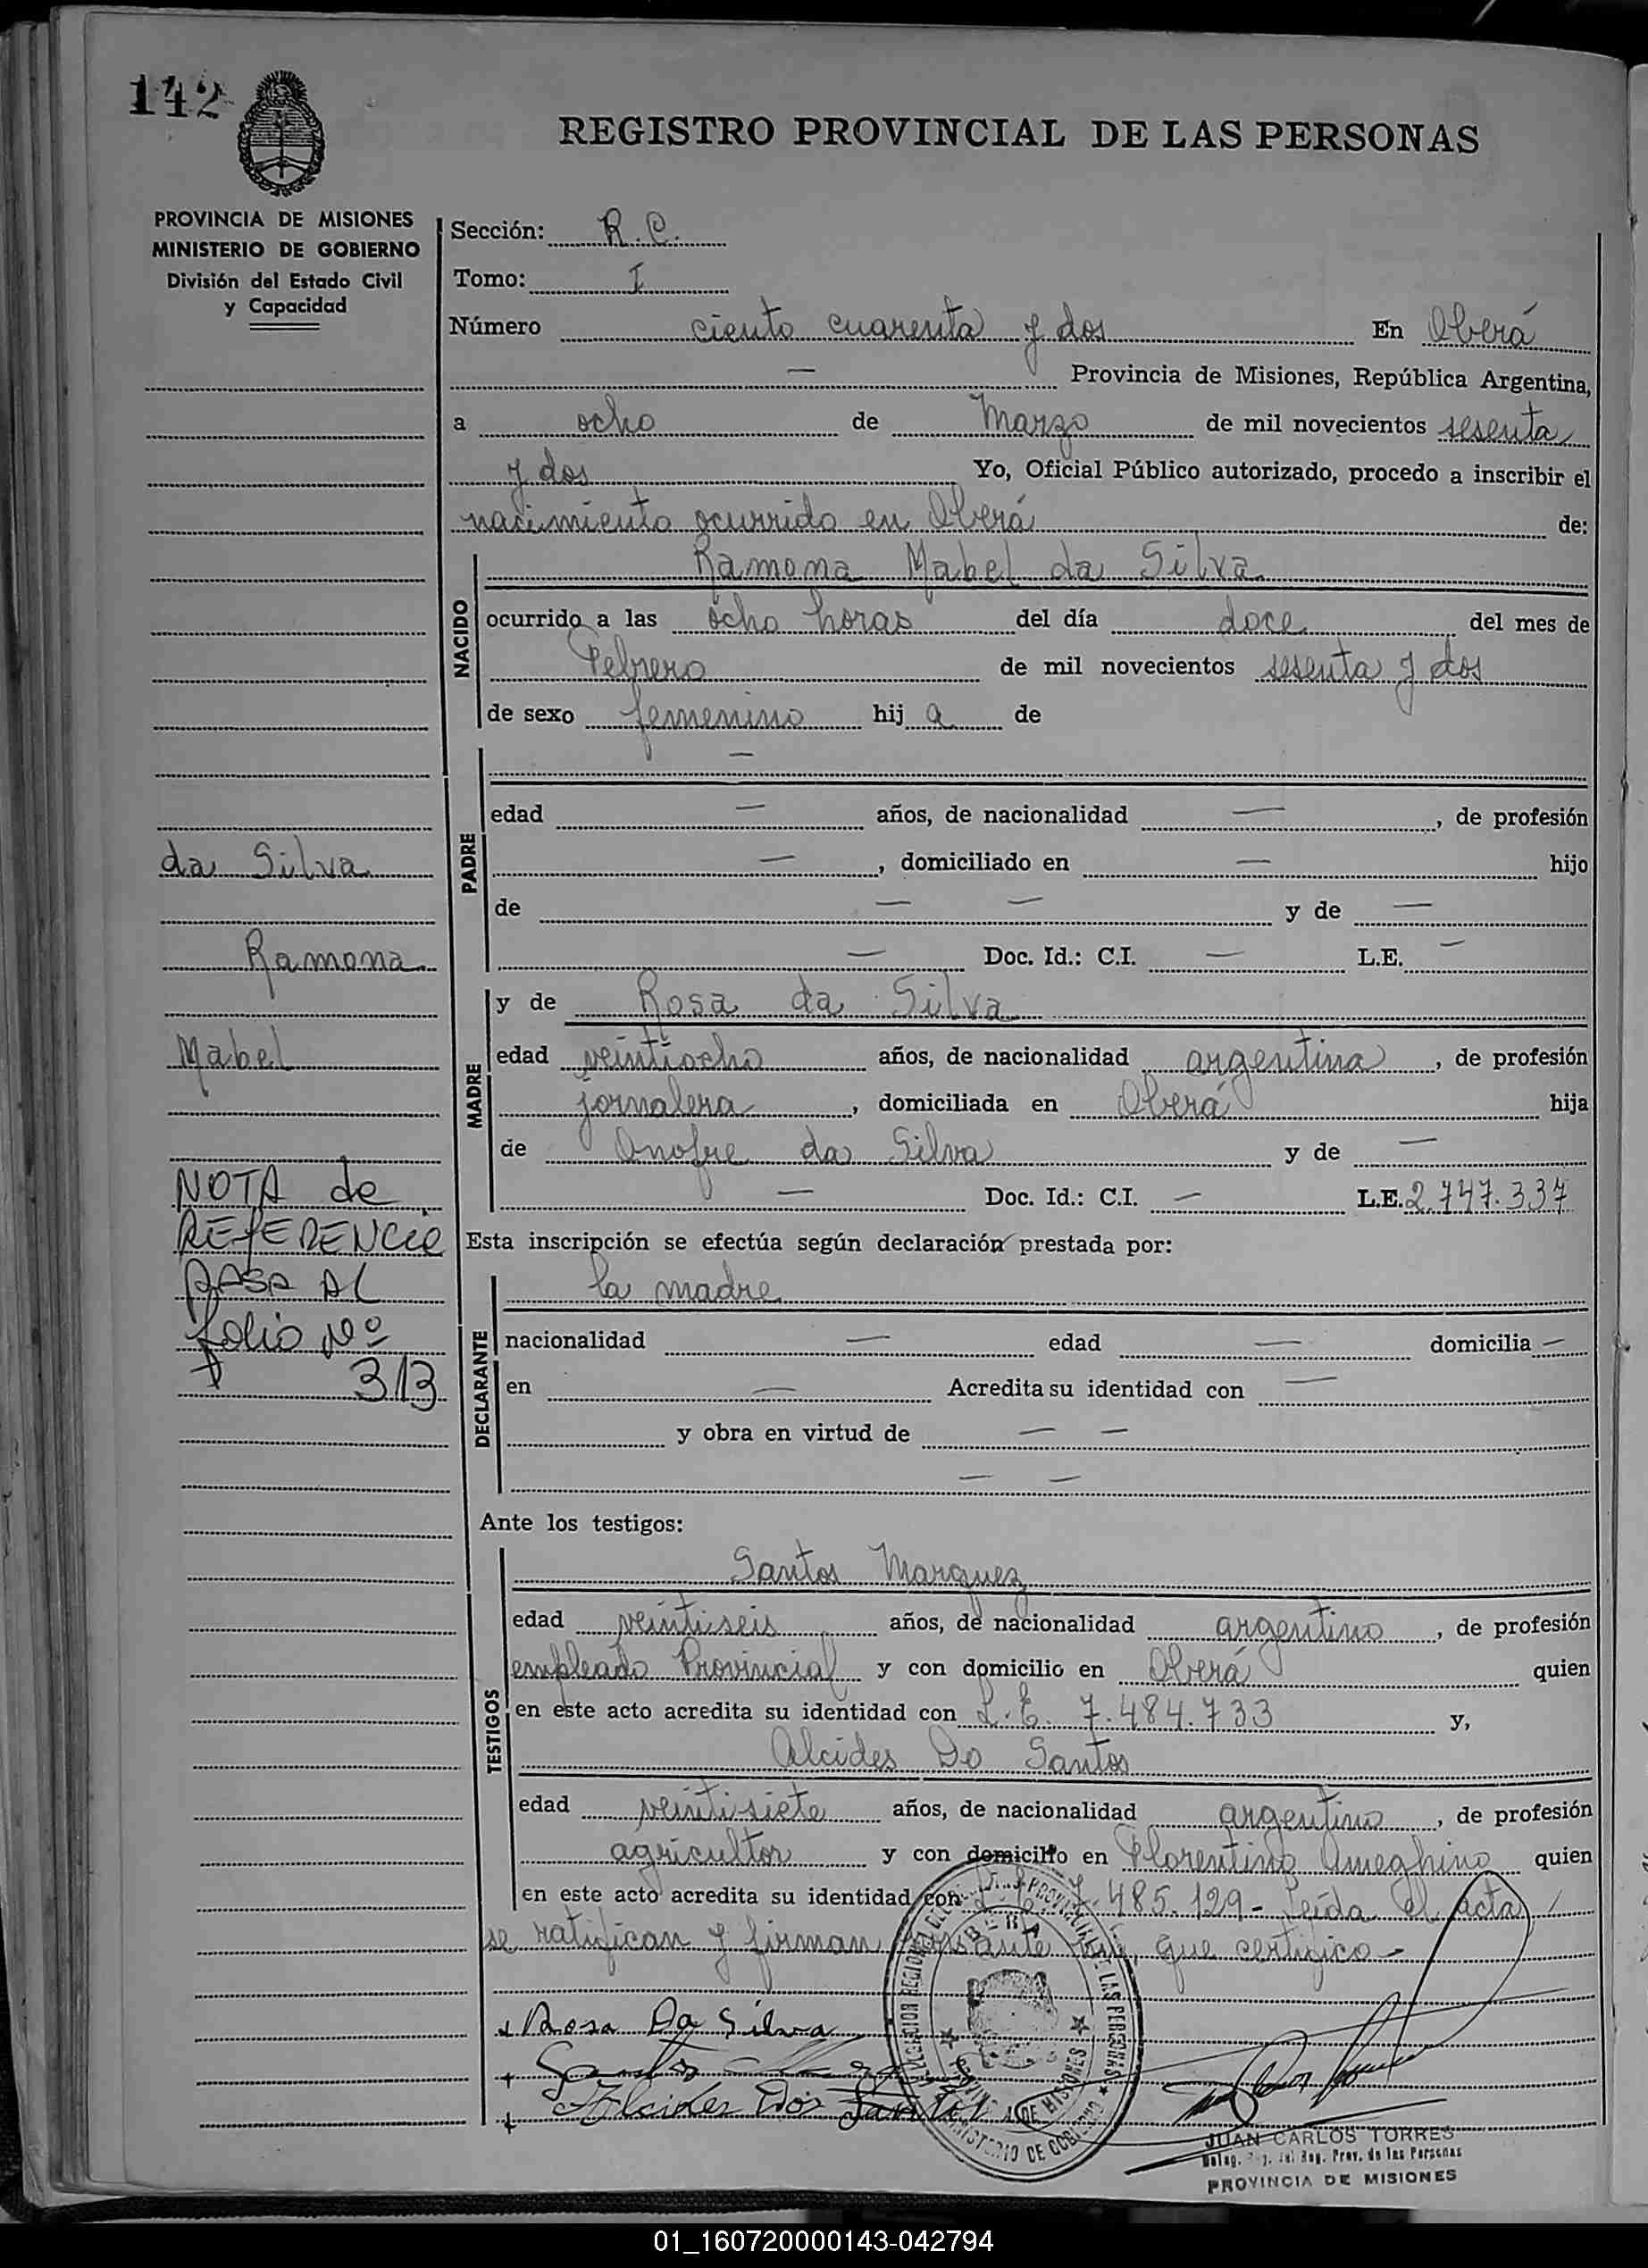 142
REGISTRO PROVINCIAL DE LAS PERSONAS
PROVINCIA DE MISIONES
MINISTERIO DE GOBIERNO
División del Estado Civil
y Capacidad
Sección: R. C.
Tomo: I
Número ciento cuarenta y dos En Oberá
— Provincia de Misiones, República Argentina,
a ocho de Marzo de mil novecientos sesenta
y dos Yo, Oficial Público autorizado, procedo a inscribir el
nacimiento ocurrido en Oberá de:
NACIDO
Ramona Mabel da Silva
ocurrido a las ocho horas del día doce del mes de
Febrero de mil novecientos sesenta y dos
de sexo femenino hij a de
PADRE
—
edad — años, de nacionalidad —, de profesión
—, domiciliado en — hijo
de — — y de —
— Doc. Id.: C.I. — L.E. —
MADRE
y de Rosa da Silva
edad veintiocho años, de nacionalidad argentina, de profesión
jornalera, domiciliada en Oberá hija
de Onofre da Silva y de —
— Doc. Id.: C.I. — L.E. 2.747.337
Esta inscripción se efectúa según declaración prestada por:
DECLARANTE
la madre
nacionalidad — edad — domicilia —
en — Acredita su identidad con —
y obra en virtud de — —
— —
Ante los testigos:
TESTIGOS
Santos Marquez
edad veintiseis años, de nacionalidad argentino, de profesión
empleado Provincial y con domicilio en Oberá quien
en este acto acredita su identidad con L.E. 7.484.733 y,
Alcides Do Santos
edad veintisiete años, de nacionalidad argentino, de profesión
agricultor y con domicilio en Florentino Ameghino quien
en este acto acredita su identidad con 7.485.129- Leída el acta
se ratifican y firman por ante mí, que certifico-
da Silva
Ramona
Mabel
NOTA de
REFERENCIA
PASA AL
folio Nº
313
Rosa Da Silva
Alcides Dos Santos
MINISTERIO DE GOBIERNO
JUAN CARLOS TORRES
Reg. Prov. de las Personas
PROVINCIA DE MISIONES
01_160720000143-042794